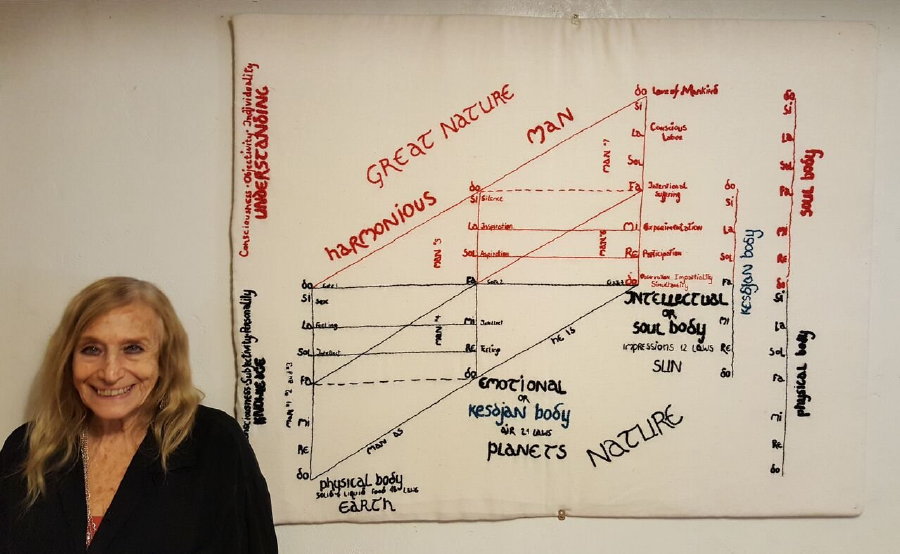 Consciousness · Objectivity · Individuality
UNDERSTANDING
GREAT NATURE
MAN
HARMONIOUS
do Love of Mankind
Si
La Conscious
Labor
Sol
MAN #7
Fa Intentional
Suffering
do
Si Silence
La Inspiration
Mi Experimentation
Sol Aspiration
Re Participation
MAN #5
MAN #6
do
Observation Impartiality
Simultaneity
Fa
do
Si Sex
La Feeling
Sol Intellect
Fa
Mi
Re
do
MAN #4
Mi Intellect
Re Feeling
do
MAN AS
HE IS
INTELLECTUAL
OR
SOUL BODY
IMPRESSIONS 12 LAWS
SUN
EMOTIONAL
OR
KESDJAN BODY
AIR 24 LAWS
PLANETS
NATURE
PHYSICAL BODY
EARTH
do
Si
La
Sol
Fa
Mi
Re
do
KESDJAN BODY
SOUL BODY
do
Si
La
Sol
Fa
Mi
Re
do
PHYSICAL BODY
Si
La
Sol
Fa
Mi
Re
do